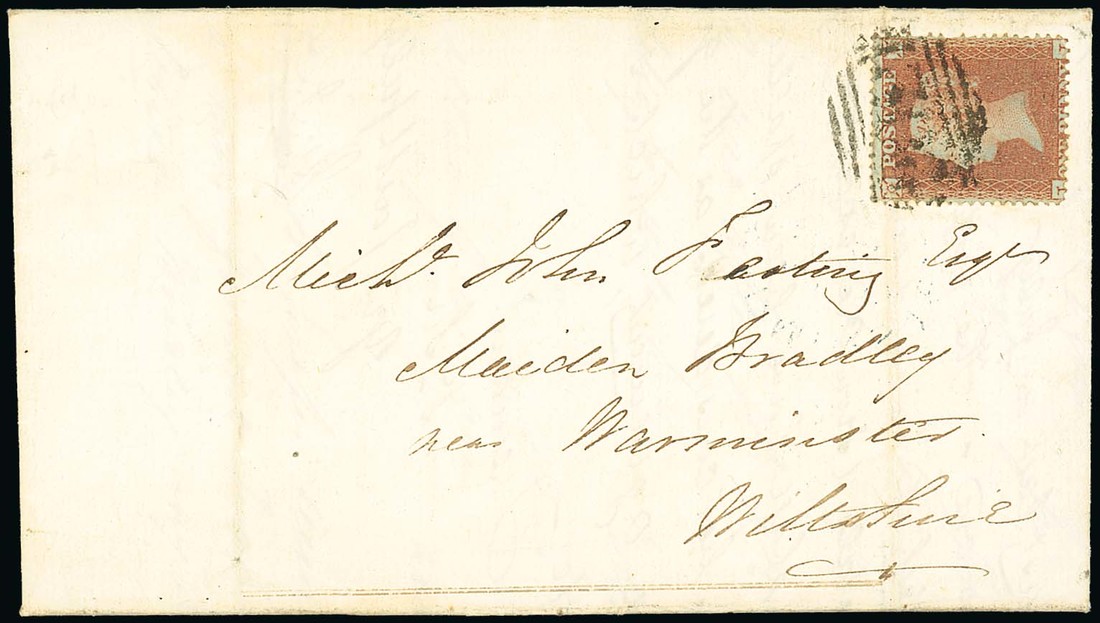 POSTAGE
ONE PENNY
Mich.l John Festing Esqr
Maiden Bradley
near Warminster.
Wiltshire